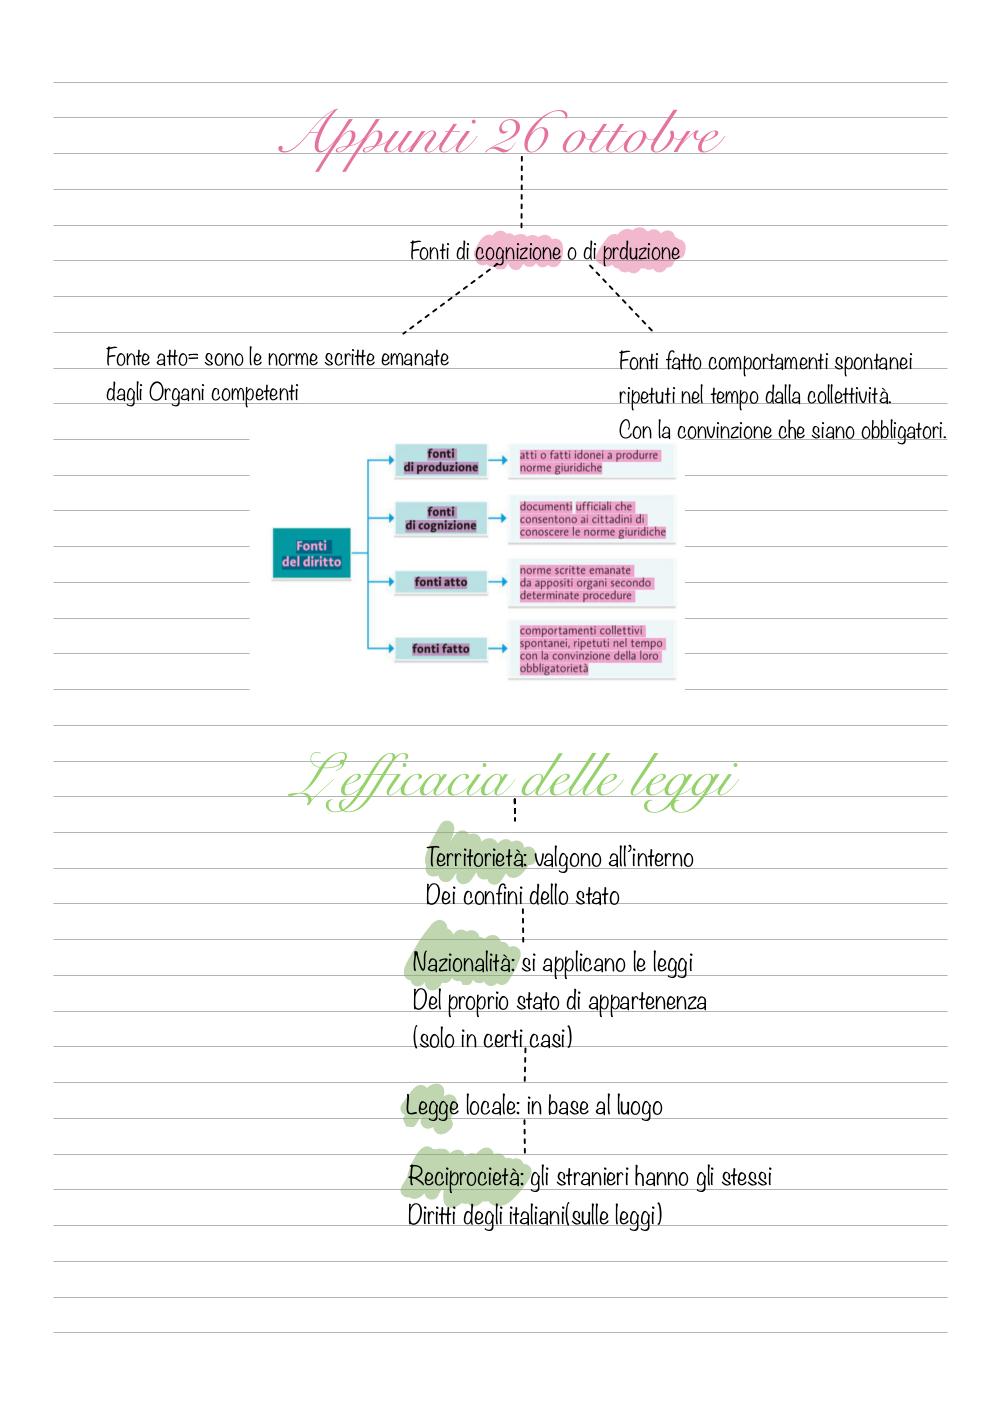 Appunti 26 ottobre
Fonti di cognizione o di prduzione
Fonte atto= sono le norme scritte emanate
dagli Organi competenti
Fonti fatto comportamenti spontanei
ripetuti nel tempo dalla collettività.
Con la convinzione che siano obbligatori.
Fonti
del diritto
fonti
di produzione
atti o fatti idonei a produrre
norme giuridiche
fonti
di cognizione
documenti ufficiali che
consentono ai cittadini di
conoscere le norme giuridiche
fonti atto
norme scritte emanate
da appositi organi secondo
determinate procedure
fonti fatto
comportamenti collettivi
spontanei, ripetuti nel tempo
con la convinzione della loro
obbligatorietà
L'efficacia delle leggi
Territorietà: valgono all'interno
Dei confini dello stato
Nazionalità: si applicano le leggi
Del proprio stato di appartenenza
(solo in certi casi)
Legge locale: in base al luogo
Reciprocietà: gli stranieri hanno gli stessi
Diritti degli italiani(sulle leggi)